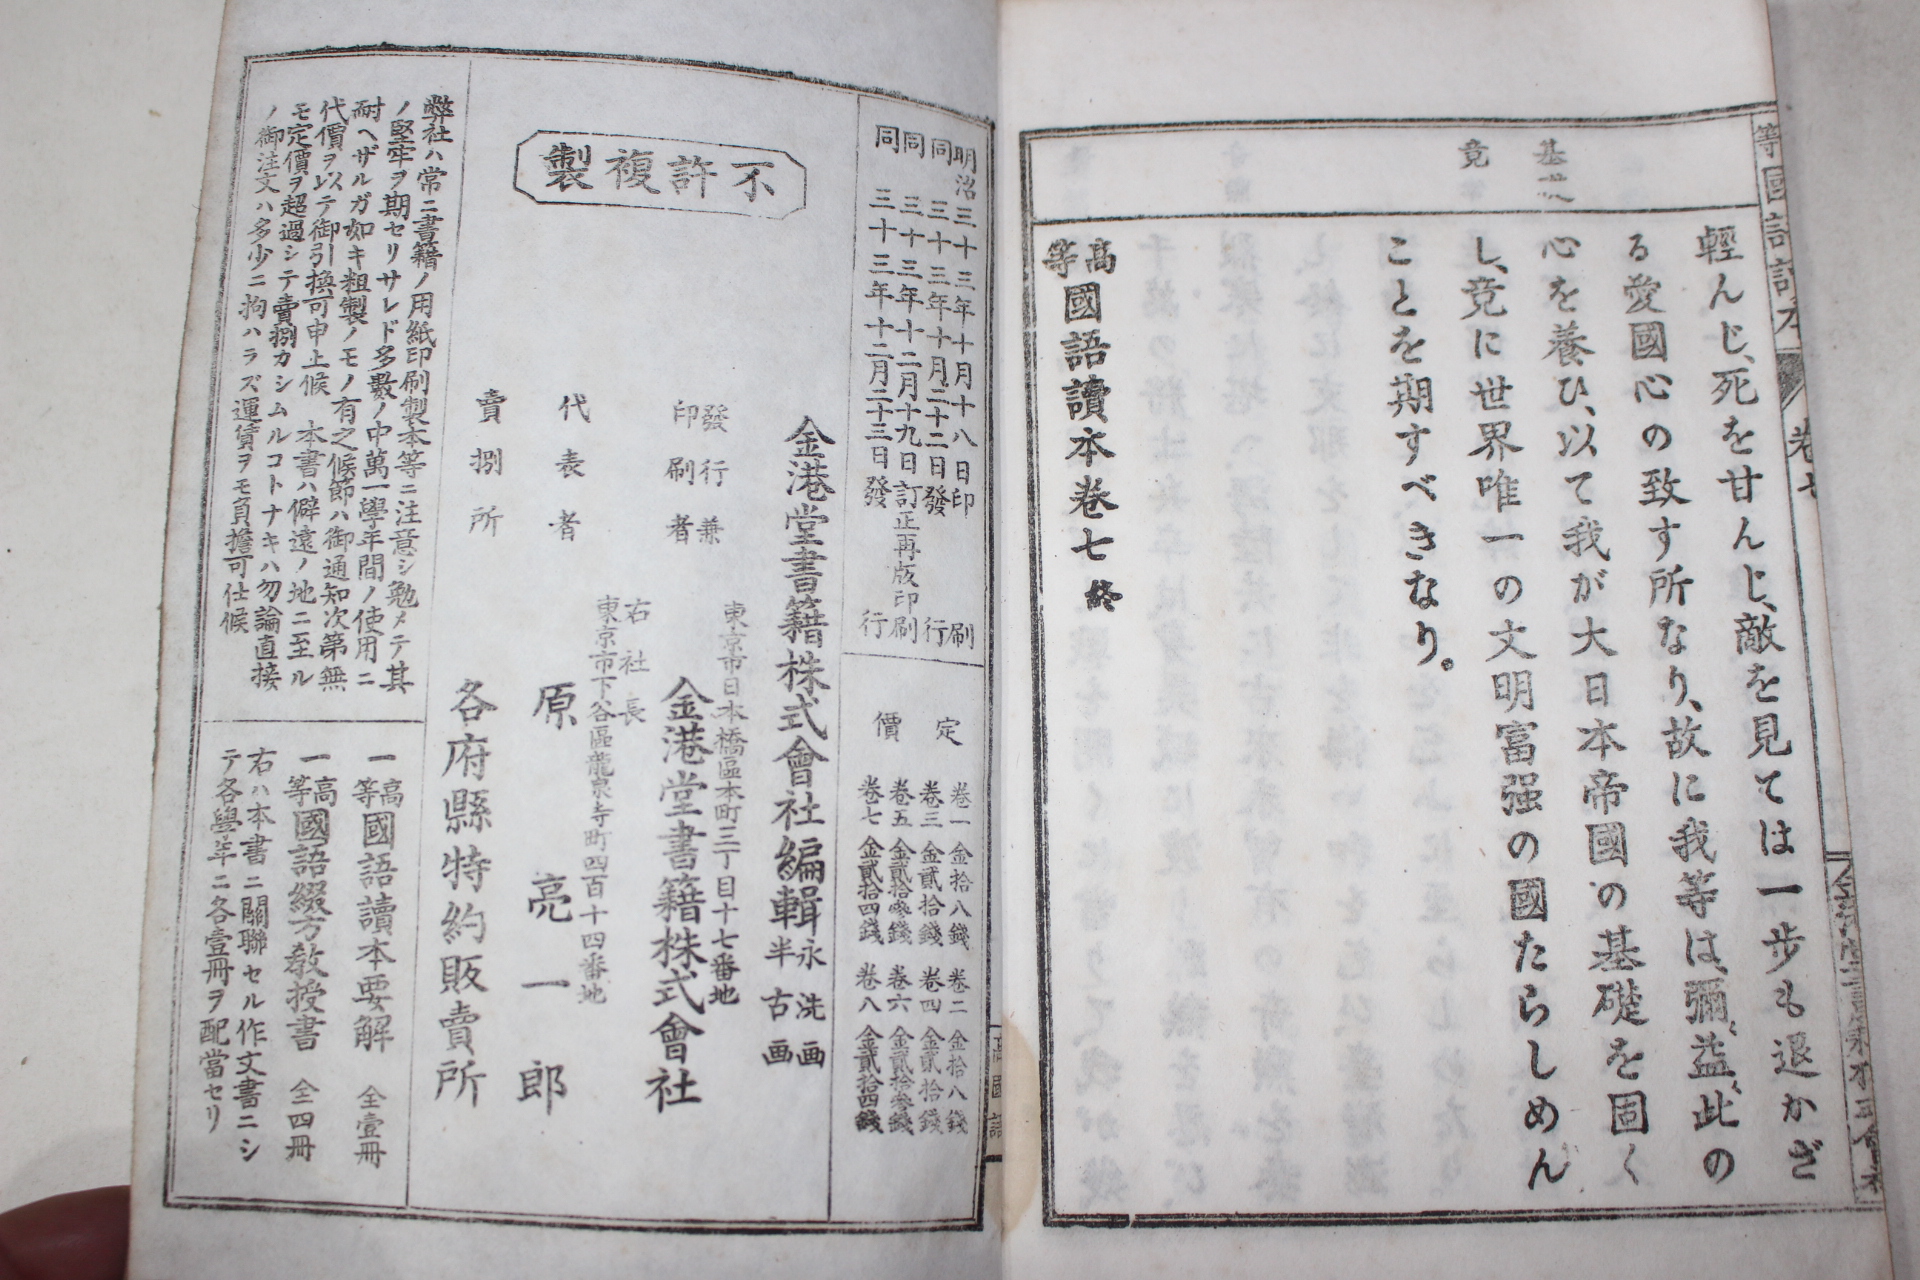 基礎
竟
輕んじ、死を甘んじ、敵を見ては一步も退かざ
る愛國心の致す所なり、故に我等は、彌〻益〻此の
心を養ひ、以て我が大日本帝國の基礎を固く
し、竟に世界唯一の文明富强の國たらしめん
ことを期すべきなり。
高等國語讀本卷七終
明治三十三年十月十八日印刷
同三十三年十月二十二日發行
同三十三年十二月十九日訂正再版印刷
同三十三年十二月二十三日發行
定價
卷一金拾八錢 卷二金拾八錢
卷三金貳拾錢 卷四金貳拾錢
卷五金貳拾參錢 卷六金貳拾參錢
卷七金貳拾四錢 卷八金貳拾四錢
不許複製
金港堂書籍株式會社編輯 永洗画 半古画
東京市日本橋區本町三丁目十七番地
發行兼印刷者 金港堂書籍株式會社
右社長
東京市下谷區龍泉寺町四百十四番地
代表者 原亮一郎
賣捌所 各府縣特約販賣所
弊社ハ常ニ書籍ノ用紙印刷製本等ニ注意シ勉メテ其
ノ堅牢ヲ期セリサレド多數ノ中萬一學年間ノ使用ニ
耐ヘザルガ如キ粗製ノモノ有之候節ハ御通知次第無
代價ヲ以テ御引換可申上候 本書ハ僻遠ノ地ニ至ル
モ定價ヲ超過シテ賣捌カシムルコトナキハ勿論直接
ノ御注文ハ多少ニ拘ハラズ運賃ヲモ負擔可仕候
一高等國語讀本要解 全壹冊
一高等國語綴方敎授書 全四冊
右ハ本書ニ關聯セル作文書ニシ
テ各學年ニ各壹冊ヲ配當セリ